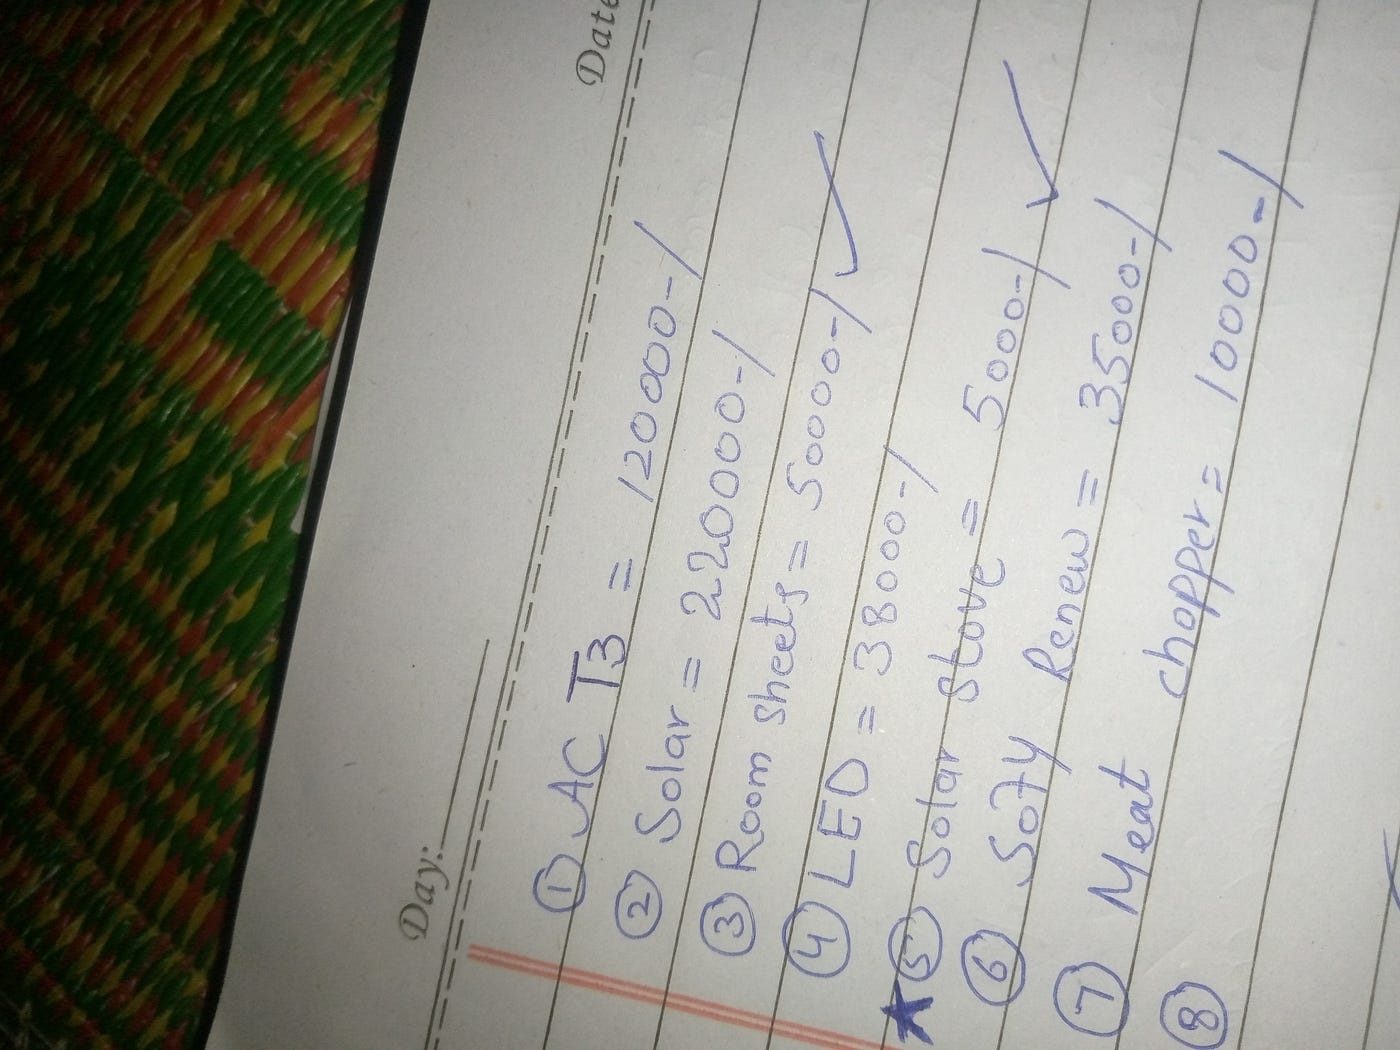 Day:
Date
① AC T3 = 120000-/
② Solar = 220000-/
③ Room sheets = 50000-/ ✓
④ LED = 38000-/
★⑤ Solar stove = 5000-/ ✓
⑥ Sofy Renew = 35000-/
⑦ Meat chopper = 10000-/
⑧